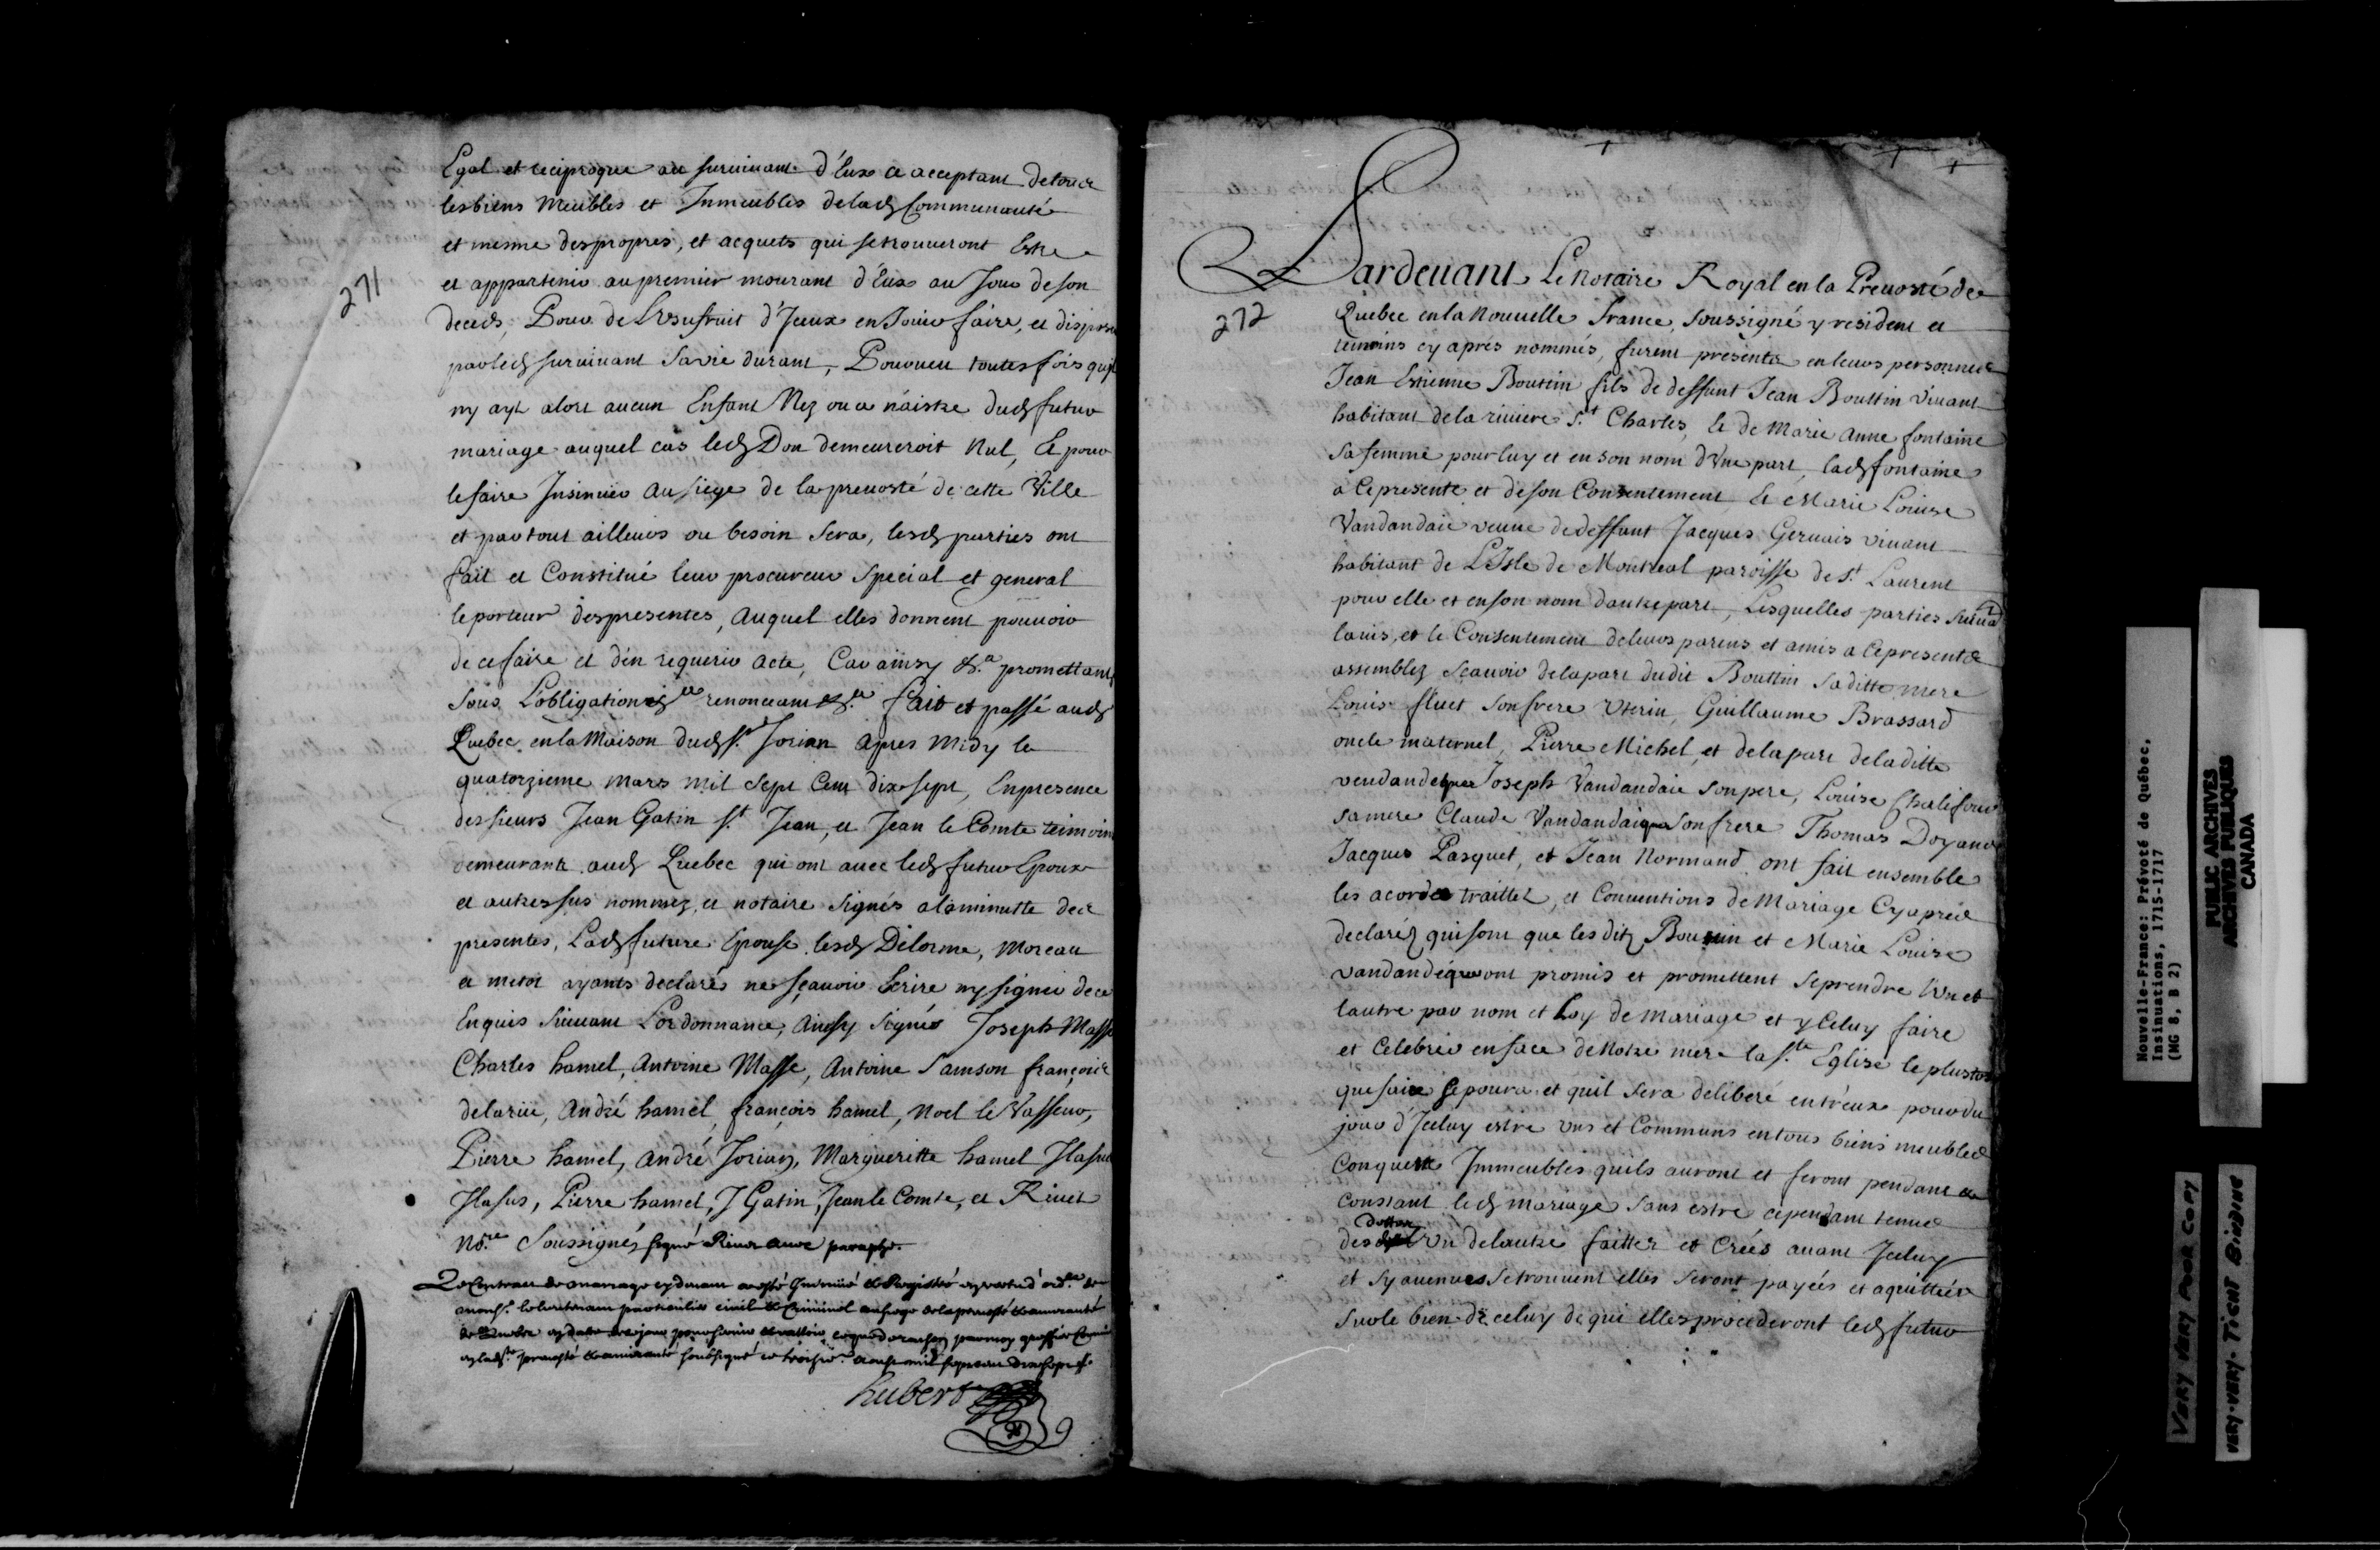 Egal et reciproque au survivant d'Eux ce acceptant de tous
les biens Meubles et Immeubles de lad Communauté
et mesme des propres, et acquets qui se trouveront Estre
271
et appartenir au premier mourant d'Eux au Jour de son
deceds, Pour de L'usufruit d'Iceux en Jouir faire, et disposer
par led survivant sa vie durant, Pourveu toutesfois quil
ny ayt alors aucun Enfant Nez ou a naistre dud futur
mariage auquel cas led Don demeureroit Nul, Et pour
le faire Insinuer au siege de la prevosté de cette Ville
et partout ailleurs ou besoin sera, lesd parties ont
fait et Constitué leur procureur special et general
le porteur des presentes, auquel elles donnent pouvoir
de ce faire et d'en requerir acte, Car ainsy &.a promettant
sous L'obligation renonceant &.a fait et passé aud
Quebec en la Maison dud S.t Jorian apres midy le
quatorzieme mars mil sept Cent dix sept, En presence
des sieurs Jean Gatin S.t Jean, et Jean le Comte temoins
demeurants aud Quebec qui ont avec led futur Epoux
et autres sus nommez et notaire signés a la minutte des
presentes, Lad future Epouse lesd Delorme, Moreau
et metot ayants declarés ne sçavoir Ecrire ny signer de ce
Enquis suivant L'ordonnance, ainsy signés Joseph Masse
Charles hamel, Antoine Masse, Antoine Samson françois
delarue, André hamel, françois hamel, Noel le Vasseur,
Pierre hamel, André Jorian, Margueritte hamel
Pierre hamel, J Gatin, Jean le Comte, et Rivet
No.re Soussignés signé Rivet avec paraphe.
Le Contract de mariage cy devant a esté Insinué et Registré en vertu d'ord.ce de
Mons.r le lieutenant particulier civil et Criminel au siege de la prevosté et amirauté
de Quebec en datte de ce jour pour servir et valloir ce que de raison par moy greffier Commis
en lad.te prevosté et amirauté soubsigné ce troisie.e mil sept cent dix sept
hubert
Pardevant Le Notaire Royal en la Prevosté de
272
Quebec en la Nouvelle france, soussigné y resident et
temoins cy aprés nommés, furent presents en leurs personnes
Jean Estienne Boutin fils de deffunt Jean Bouttin vivant
habitant de la riviere S.t Charles, Et de Marie Anne fontaine
sa femme pour luy et en son nom d'Une part, lad fontaine
a ce presente et de son Consentement Et Marie Louise
Vandandaie veuve de deffunt Jacques Gervais vivant
habitant de L'Isle de Montreal paroisse de S.t Laurent
pour elle et en son nom dautre part, Lesquelles parties suivant
lavis, et le Consentement de leurs parens et amis a ce presents
assemblez scavoir de la part dudit Bouttin sa ditte mere
Louis fluet son frere Uterin, Guillaume Brassard
oncle maternel, Pierre Michel, et de la part de la ditte
vendandeque Joseph Vandandaie son pere, Louise Chalifour
sa mere Claude Vandandaique son frere Thomas Doyand
Jacques Pasquet, et Jean Normand ont fait ensemble
les acordes traittez, et Conventions de Mariage Cy aprés
declaréz qui sont que les ditz Boutin et Marie Louise
vandandéque ont promis et promettent se prendre L'Un et
lautre par nom et Loy de mariage et yCeluy faire
et Celebrer en face de Notre mere la S.te Eglise le plustost
que faire se poura et quil sera deliberé entr'eux pour du
jour d'Iceluy estre uns et Communs en tous biens meubles
Conquests Immeubles quils auront et feront pendant et
constant led mariage sans estre cependant tenus
des dettes L'Un de lautre faittes et Créés avant Iceluy
et sy aucunes se trouvent elles seront payées et aquittées
sur le bien de celuy de qui elles procederont led futur
Nouvelle-France: Prévoté de Québec,
Insinuations, 1715-1717
(MG 8, B 2)
PUBLIC ARCHIVES
ARCHIVES PUBLIQUES
CANADA
VERY VERY POOR COPY
VERY-VERY-TIGHT BINDING